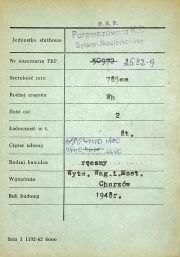 P. K. P.
Jednostka służbowa Parowozownia K.D.
Bytom-Maciejkowice
Nr inwentarza PKP 2582-9
Szerokość toru 785mm
Rodzaj wagonu Wh
Ilość osi 2
Ładowność w t. 8t.
Ciężar własny 4480
Rodzaj hamulca ręczny
Wytwórnia Wytw. Wag. i. Most.
Chorzów
Rok budowy 1948r.